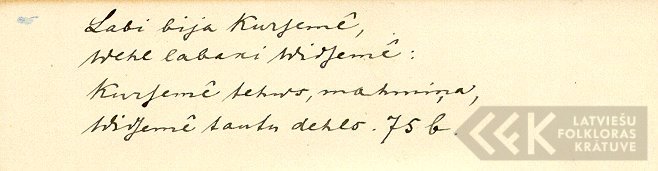 Labi bija Kurſemê,
Wehl labaki Widſemê:
Kurſemê tehws, mahmiņa,
Widſemê tautu dehls. 75 b.
LATVIEŠU
FOLKLORAS
KRĀTUVE